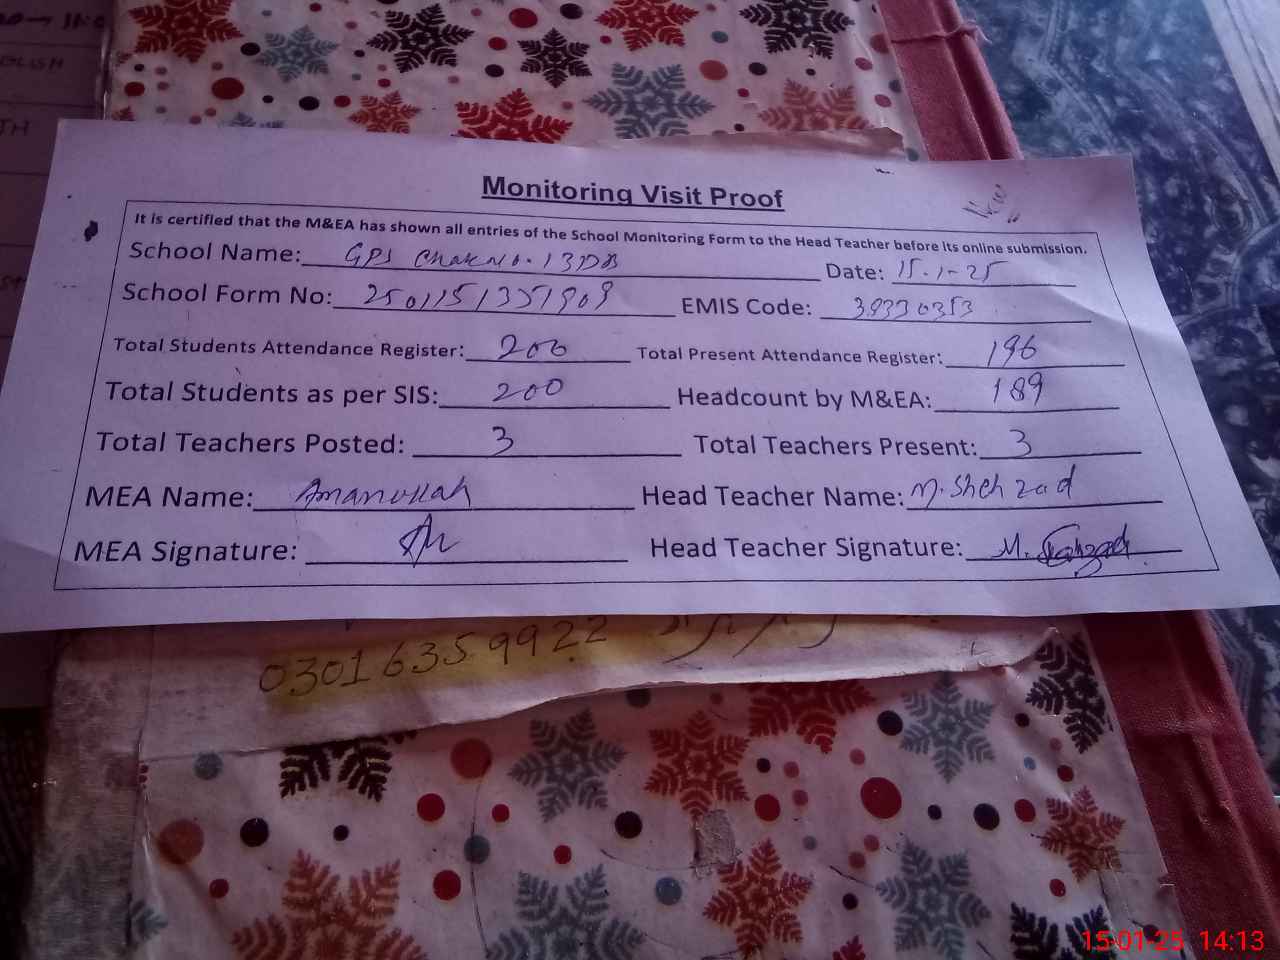 GLISH
Monitoring Visit Proof
It is certified that the M&EA has shown all entries of the School Monitoring Form to the Head Teacher before its online submission.
School Name: GPS Chak No. 13DB Date: 15.1-25
School Form No: EMIS Code:
Total Students Attendance Register: 200 Total Present Attendance Register: 196
Total Students as per SIS: 200 Headcount by M&EA: 189
Total Teachers Posted: 3 Total Teachers Present: 3
MEA Name: Amanullah Head Teacher Name: M. Shehzad
MEA Signature: Head Teacher Signature: M. Shahzad
0301 6359922
15-01-25 14:13